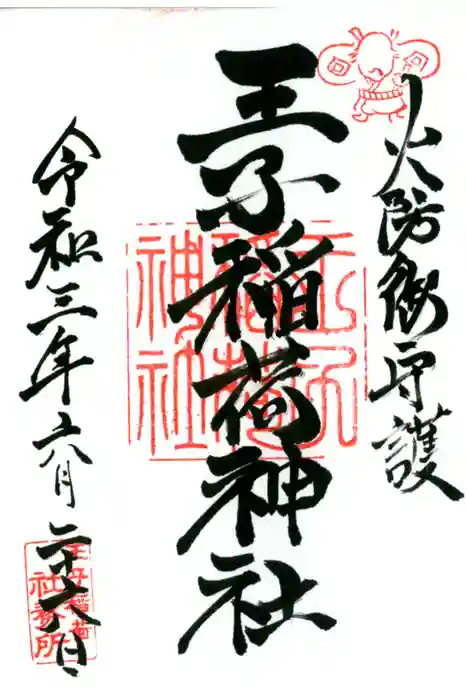 火防御守護
王子稲荷神社
王子
稲荷
神社
令和三年六月二十六日
王子稲荷
社務所